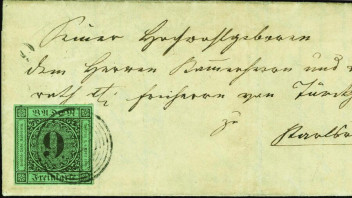 Seiner Hochwohlgeboren
dem Herren Kammerherrn und
rath Freiherrn von Türck
zu
Baden
9
Freimarke